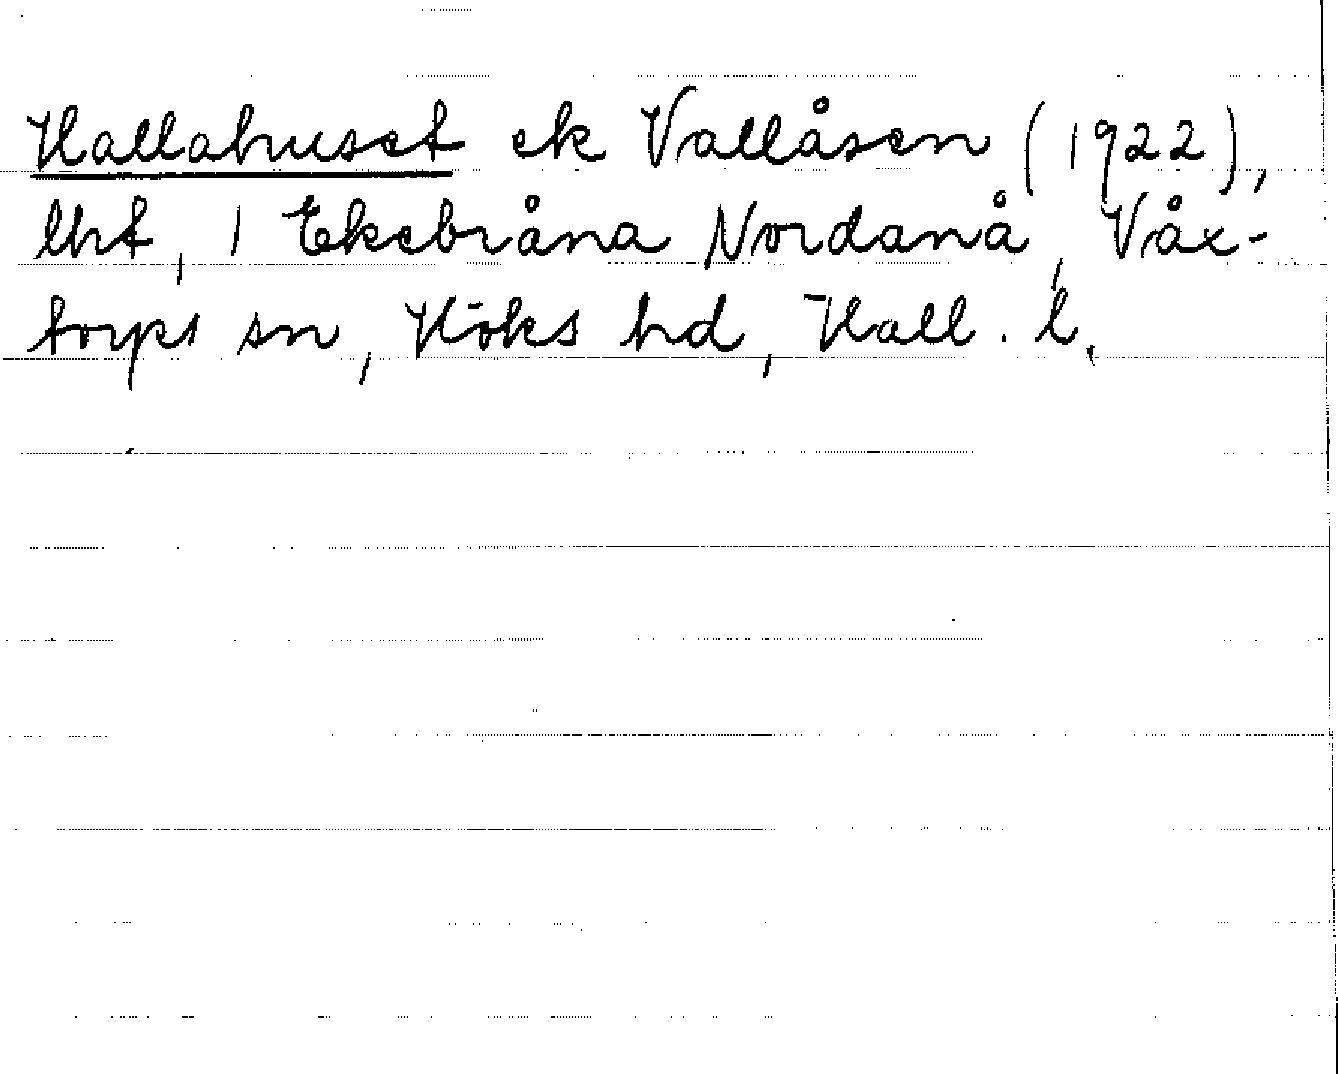 Hallahuset ek Vallåsen (1922),
lht, 1 Ekebråna Nordanå, Våx-
torps sn, Höks hd, Hall. l.